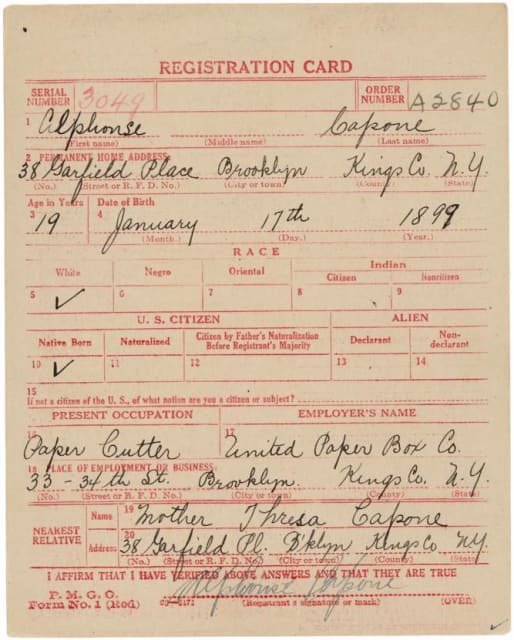 REGISTRATION CARD
SERIAL NUMBER 3049 ORDER NUMBER A2840
1 Alphonse Capone
(First name) (Middle name) (Last name)
2 PERMANENT HOME ADDRESS:
38 Garfield Place Brooklyn Kings Co. N.Y.
(No.) (Street or R. F. D. No.) (City or town) (County) (State)
Age in Years Date of Birth
3 19 4 January 17th 1899
(Month.) (Day.) (Year.)
RACE
White Negro Oriental Indian
Citizen Noncitizen
5 ✓ 6 7 8 9
U. S. CITIZEN ALIEN
Native Born Naturalized Citizen by Father's Naturalization Before Registrant's Majority Declarant Non-declarant
10 ✓ 11 12 13 14
15
If not a citizen of the U. S., of what nation are you a citizen or subject?
PRESENT OCCUPATION EMPLOYER'S NAME
16 Paper Cutter 17 United Paper Box Co.
18 PLACE OF EMPLOYMENT OR BUSINESS:
33 - 34th St. Brooklyn. Kings Co. N.Y.
(No.) (Street or R. F. D. No.) (City or town) (County) (State)
NEAREST RELATIVE Name 19 Mother Thresa Capone
Address 20 38 Garfield Pl. B'klyn Kings Co NY.
(No.) (Street or R. F. D. No.) (City or town) (County) (State)
I AFFIRM THAT I HAVE VERIFIED ABOVE ANSWERS AND THAT THEY ARE TRUE
Alphonse Capone
P. M. G. O.
Form No. 1 (Red) (Registrant's signature or mark) (OVER)